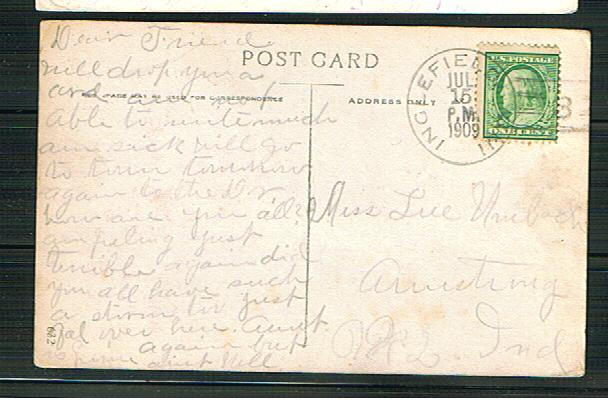 Dear Friend
POST CARD
will drop you a
card am not
THIS SPACE MAY BE USED FOR CORRESPONDENCE
ADDRESS ONLY
able to write much
am sick will go
to town tomorrow
again to the Dr.
how are you all?
am feling just
terrible again did
you all have such
a storm to just
over here. Aunt
again but
ain't well.
Miss Lue
Armstrong
Ind
INGLEFIELD
JUL
15
P.M.
1909
U.S. POSTAGE
ONE CENT
3
622